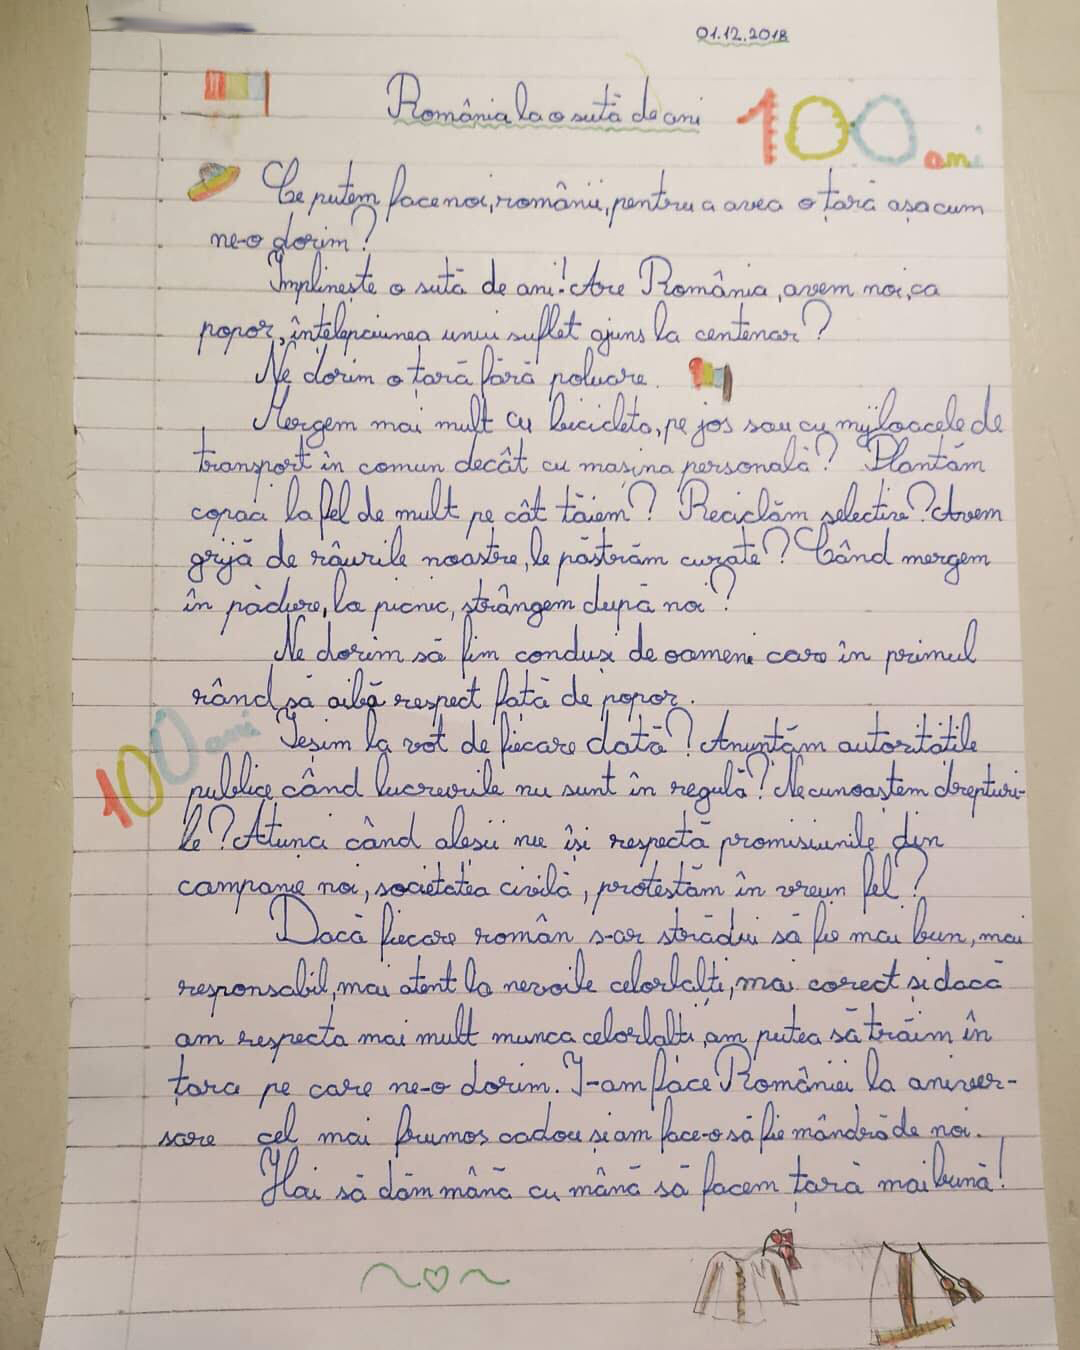 01.12.2018
România la o sută de ani
100 ani
Ce putem face noi, românii, pentru a avea o țară așa cum
ne-o dorim?
Împlinește o sută de ani! Are România, avem noi, ca
popor, înțelepciunea unui suflet ajuns la centenar?
Ne dorim o țară fără poluare.
Mergem mai mult cu bicicleta, pe jos sau cu mijloacele de
transport în comun decât cu mașina personală? Plantăm
copaci la fel de mult pe cât tăiem? Reciclăm selectiv? Avem
grijă de râurile noastre, le păstrăm curate? Când mergem
în pădure, la picnic, strângem după noi?
Ne dorim să fim conduși de oameni care în primul
rând să aibă respect față de popor.
100 ani
Ieșim la vot de fiecare dată? Anunțăm autoritățile
publice când lucrurile nu sunt în regulă? Ne cunoaștem drepturi-
le? Atunci când aleșii nu își respectă promisiunile din
campanie noi, societatea civilă, protestăm în vreun fel?
Dacă fiecare român s-ar strădui să fie mai bun, mai
responsabil, mai atent la nevoile celorlalți, mai corect și dacă
am respecta mai mult munca celorlalți, am putea să trăim în
țara pe care ne-o dorim. I-am face României la aniver-
sare cel mai frumos cadou și am face-o să fie mândră de noi.
Hai să dăm mână cu mână să facem țara mai bună!